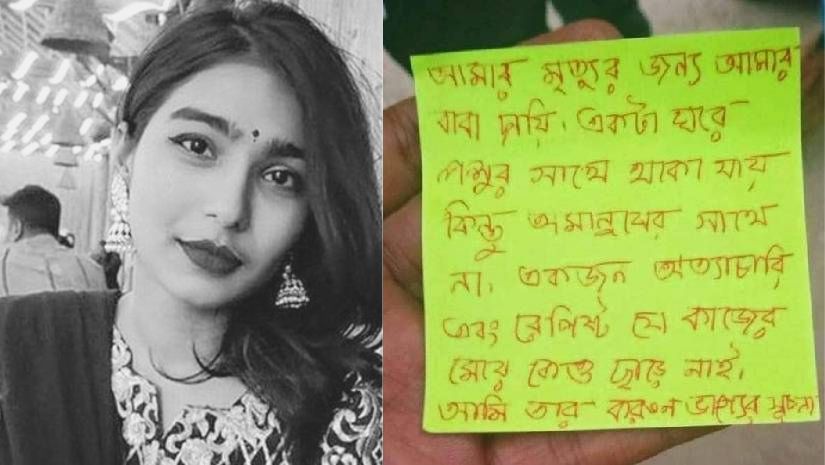 আমার মৃত্যুর জন্য আমার
বাবা দায়ি. একটা ঘরে
পশুর সাথে থাকা যায়
কিন্তু অমানুষের সাথে
না. একজন অত্যাচারি
এবং রেপিষ্ট যে কাজের
মেয়ে কেও ছাড়ে নাই.
আমি তার করুণ ভাগ্যের সূচনা